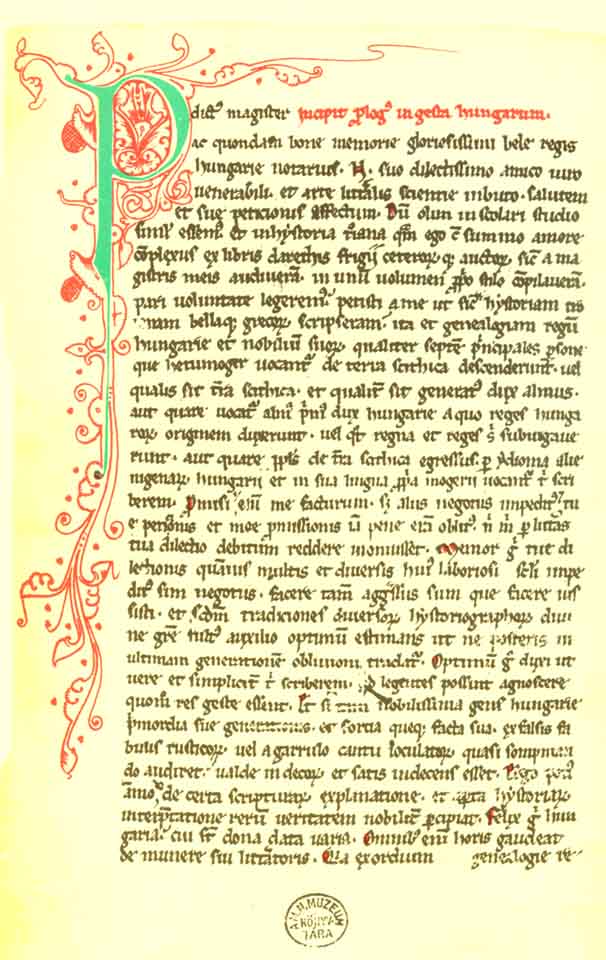 P dict⁹ magister Incipit ꝓlog⁹ in gesta hungarum.
ac quondam bone memorie gloriosissimi bele regis
hungarie notarius. N. suo dilectissimo amico uiro
uenerabili. et arte litt̃alis scientie inbuto. salutem
et sue peticionis effectum. Dũ olim in scolari studio
simul essem⁹ et in hystoria t̃iana qm̃ ego cũ summo amore
cõplexus ex libris daretis frigii ceterorꝫ qꝫ auctorꝫ. sic̃ a ma
gistris meis audiuerã. in unũ uolumen ꝓprio stilo cõpilauerã.
pari uoluntate legerem⁹. petisti a me ut sic̃ hystoriam tro
ianam bellaqꝫ grecorꝫ scripseram. ita et genealogiam regũ
hungarie et nobiliũ suorꝫ. qualiter septẽ p̃ncipales ꝑsone
que hetumoger uocant̃ de terra scithica descenderunt. uel
qualis sit t̃ra scithica. et qualit̃ sit generat⁹ dux almus.
aut quare uocat̃ alm⁹ p̃m⁹ dux hungarie a quo reges hunga
rorꝫ originem duxerunt. uel qt̃ regna et reges s̃ subiugaue
runt. aut quare ppl̃s de t̃ra scithica egressus. ꝑ ydioma alie
nigenarꝫ hungarii et in sua lingua ꝓp̃a mogerii uocant̃ t̃ scri
berem. Promisi em̃ me facturum. sꝫ aliis negotiis impedit⁹. tu
e peticionis et mee ꝓmissionis iã pene erã oblit⁹ ñ m̃ ꝑ litt̃as
tua dilectio debitum reddere monuisset. Memor g̃ tue di
lectionis quãuis multis et diuersis hui⁹ laboriosi sc̃li impe
dit⁹ sim negotiis. facere tam̃ aggressus sum que facere ius
sisti. et scdm̃ tradiciones diuersorꝫ hystoriographorꝫ diui
ne gr̃e fult⁹ auxilio optimũ estimans ut ne posteris in
ultimam generationẽ obliuioni tradat̃. Optimũ g̃ duxi ut
uere et simplicit̃ t̃ scriberem. ꝙ legentes possint agnoscere
quom̃ res geste essent. Et si tam nobilissima gens hungarie
p̃mordia sue generationis. et fortia queqꝫ facta sua. ex falsis fa
bulis rusticorꝫ. uel a garrulo cantu ioculatorꝫ quasi sompnian
do audiret. ualde indecorꝫ et satis indecens esset. Ergo pot⁹
ammo de certa scripturarꝫ explanatione. et apta hystoriarꝫ
interp̃tatione rerũ ueritatem nobilit̃ ꝑcipiat. Felix g̃ hun
garia. cui st̃ dona data uaria. Omnib⁹ em̃ horis gaudeat
de munere sui litt̃atoris. Quia exordium genealogie re-
A M. N. MUZEUM
KÖNYV
TÁRA